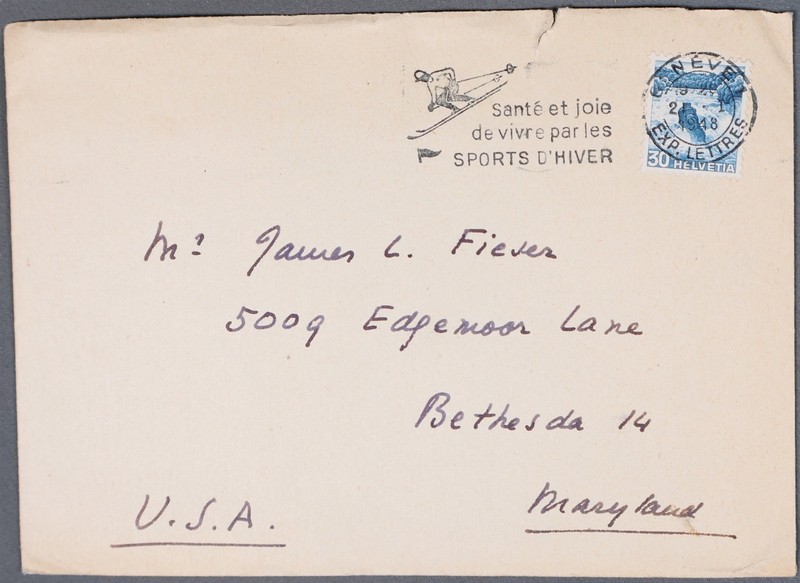 Santé et joie
de vivre par les
SPORTS D'HIVER
GENÈVE 1
1948
EXP. LETTRES
30 HELVETIA
Mr James L. Fieser
5009 Edgemoor Lane
Bethesda 14
Maryland
U.S.A.